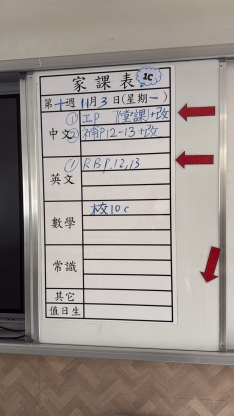 家課表 1C
第十週 11月3日(星期一)
中文 ① 工P 1(堂課)+改
② 補P12-13+改
英文 ① RB P.12,13
數學 校10c
常識
其它
值日生